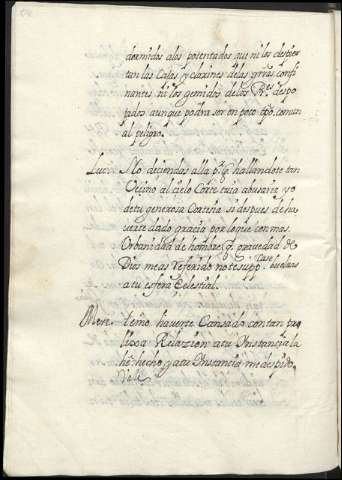 dormidos a los potentados que ni los despier
tan las Caxas, y claxines de las grras confi
nantes, ni los gemidos de los Res despo
jados aunque podra ser en poco tpo, comun
al peligro.
Luci. No deciendas alla pr q hallandote tan
Vecino al cielo Corte tuia abusare yo
de tu generosa Cortesia si despues de ha
uerte dado gracia por lo que con mas
Urbanidad de hombre q grauedad de
Dios me as referido no te supp case bueluas
a tu esfera Celestial.
Mer. temo hauerte Cansado con tan pro
lixa Relazion a tu Instancia la
he hecho, y a tu Instancia me despido,
Vale